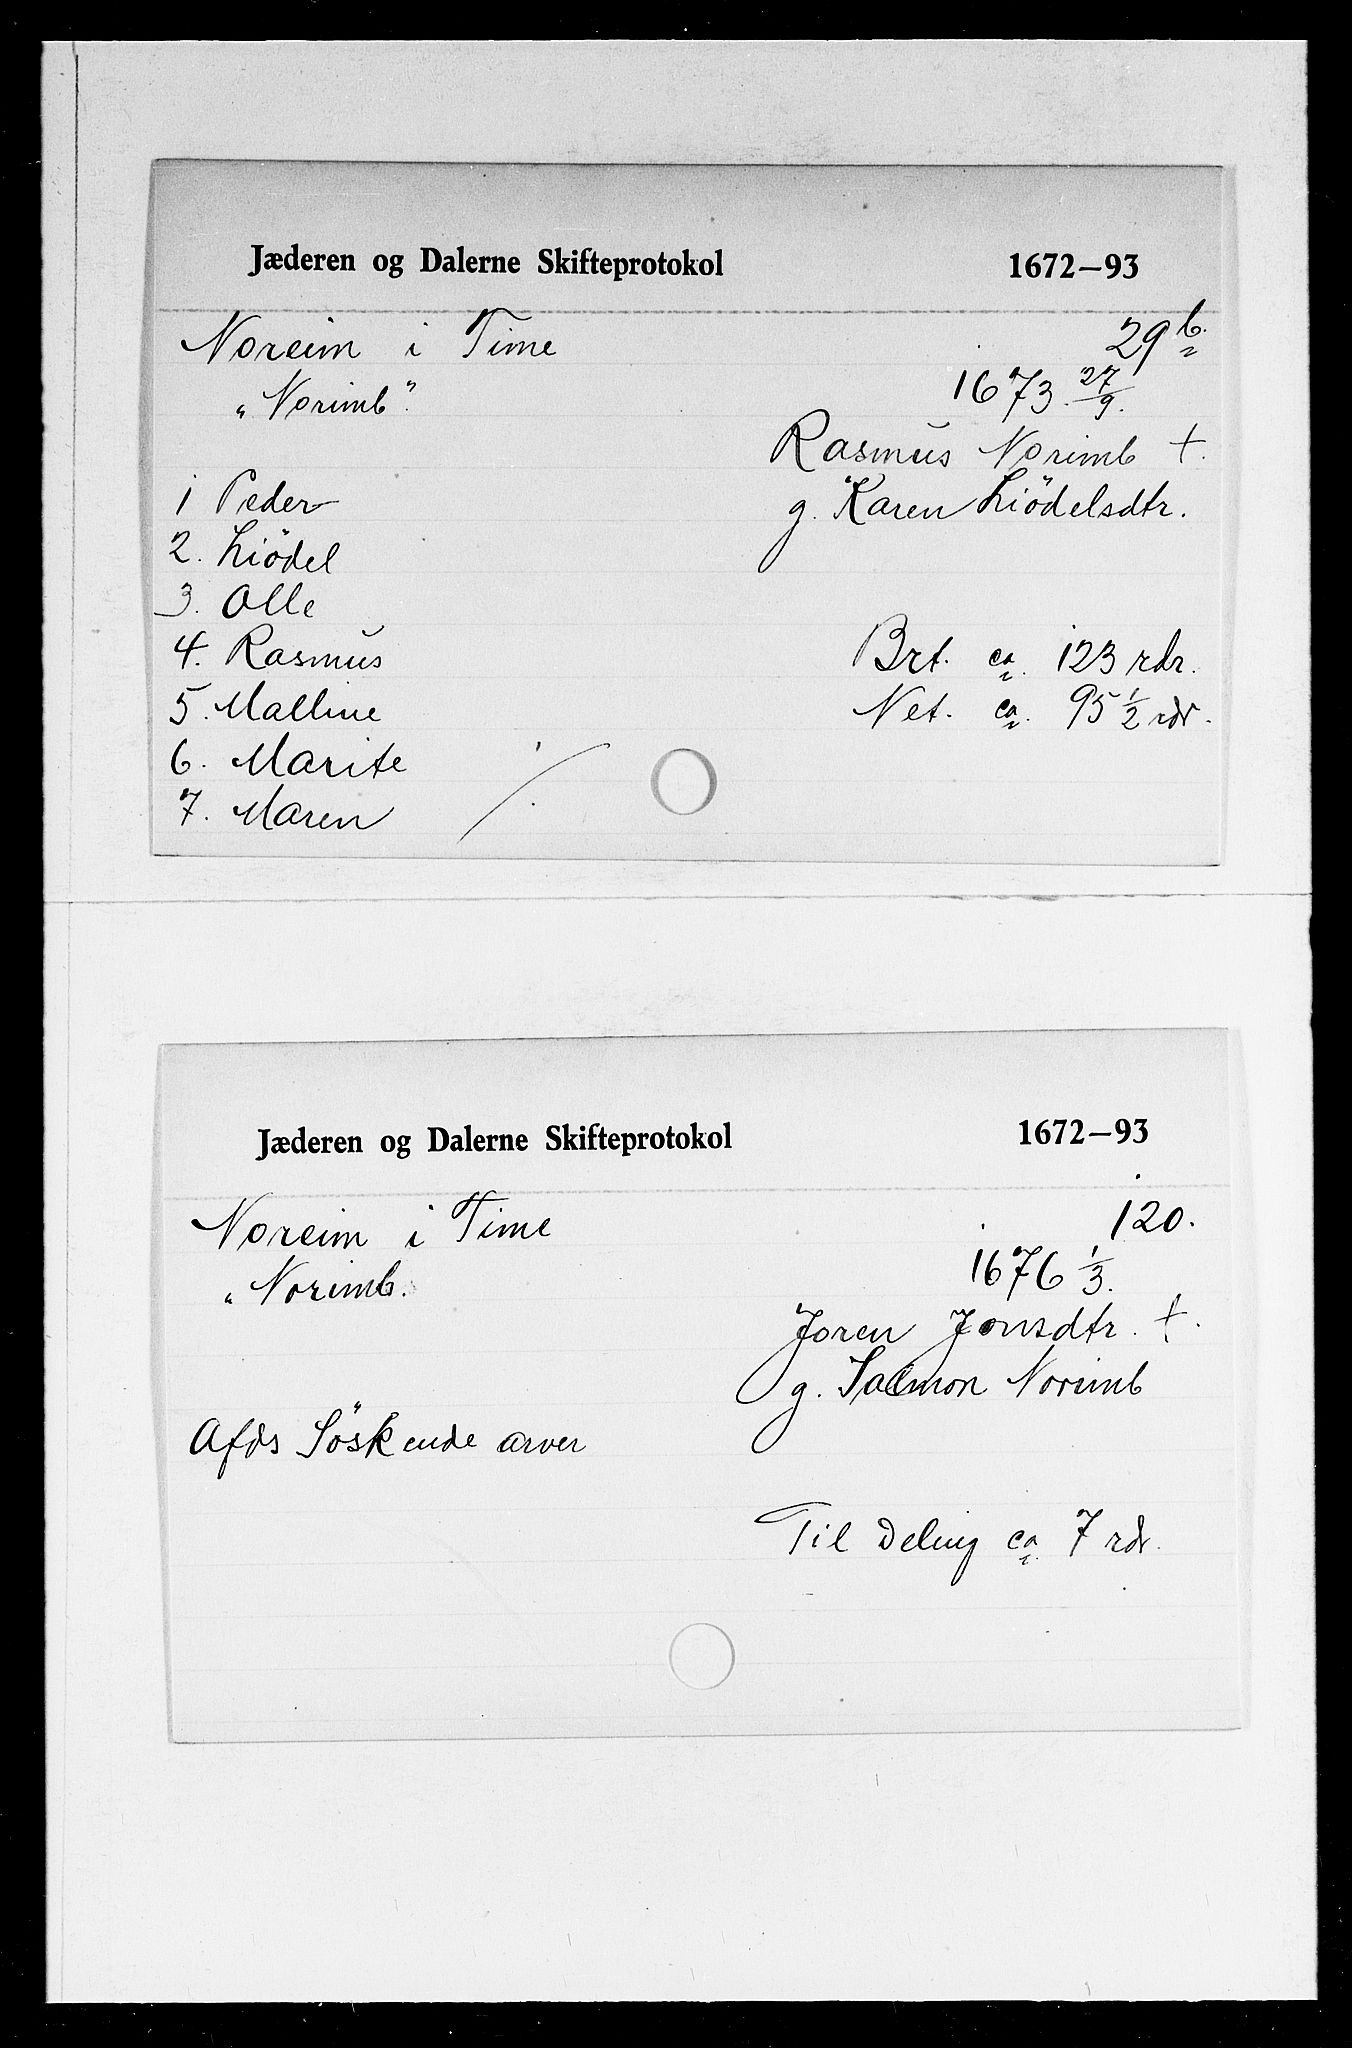 Jæderen og Dalerne Skifteprotokol 1672–93
Noreim i Time 29 b.
"Norimb". 1673. 27/9.
Rasmus Norimb †.
g. Karen Liödelsdtr.
1 Peder
2. Liödel
3. Olle
4. Rasmus
5. Malline
6. Marite
7. Maren
Brt. ca. 123 rdr.
Net. ca. 95 1/2 rdr.
Jæderen og Dalerne Skifteprotokol 1672–93
Noreim i Time 120.
"Norimb. 1676 1/3.
Joren Jonsdtr. †.
g. Salmon Norimb
Afds Söskende arver
Til Deling ca. 7 rdr.